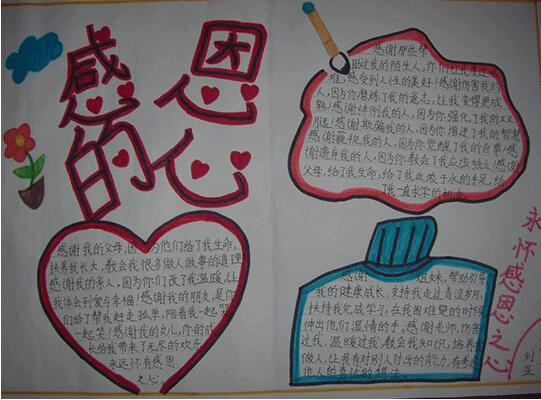 感恩
的心
感谢那些帮
助过我的陌生人,你们让我
难,感受到人性的美好!感谢伤害我的
人,因为磨炼了我的意志,让我变得更成
熟!感谢绊倒我的人,因为强化了我的双
腿!感谢欺骗我的人,因为你增进了我的智慧
感谢藐视我的人,因为你觉醒了我的自尊!感
谢遗弃我的人,因为你教会了我应该独立!感谢
父母,给了我生命,给了我血浓于水的手足,给
了我一直求学的机会
感谢我的父母,因为他们给了我生命,
扶养我长大,教会我很多做人做事的道理
感谢我的家人,因为你们改了我温暖,让
我体会到爱与幸福!感谢我的朋友,是你
们给了帮我赶走孤单,陪着我一起
一起笑!感谢我的女儿,你的成
长给我带来了无尽的欢乐
永远怀有感恩
之心。
感谢 姐妹,帮助引导
我的健康成长,支持我走过青涩岁月,
扶持我完成学习,在我困难是的时候
伸出他们温情的手。感谢老师,伤害
过我,温暖过我,教会我知识,培养我
做人,让我有对别人付出的能力,有
他人的喜悦的想法。
永怀感恩之心
刘亚